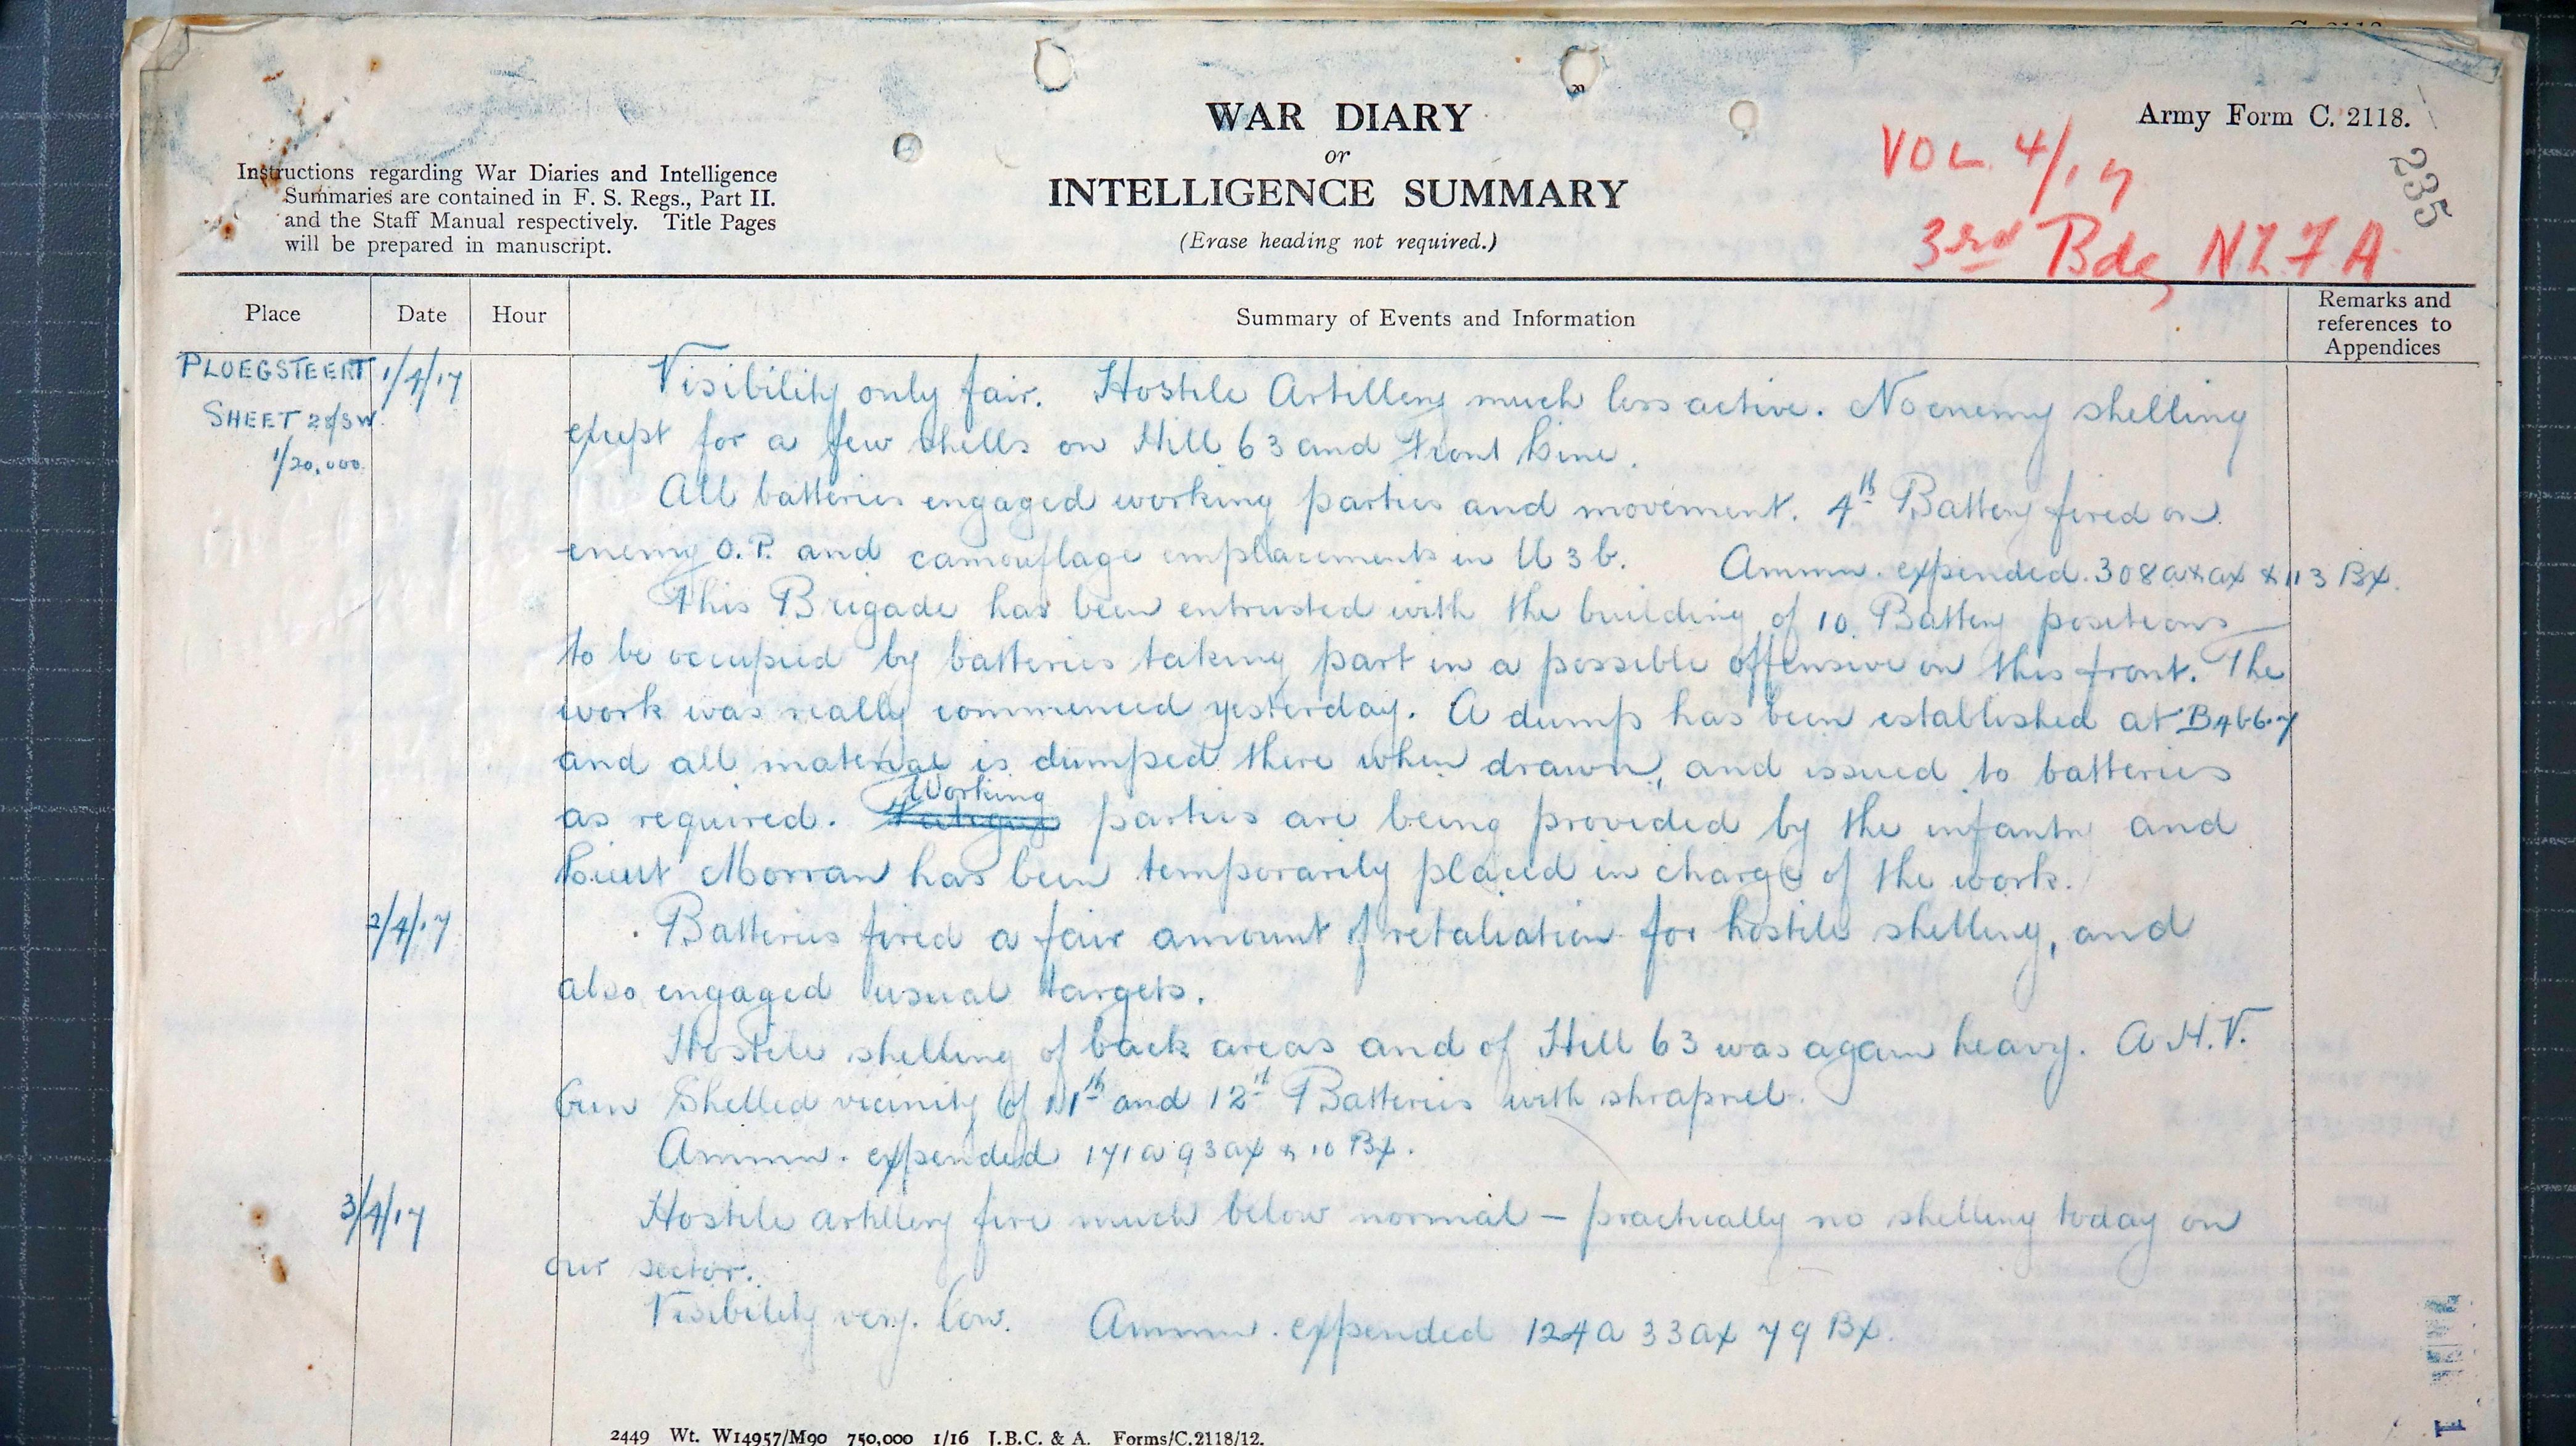 WAR DIARY
or
INTELLIGENCE SUMMARY
(Erase heading not required.)
Army Form C. 2118.
235
VOL. 4/17
3rd Bde NZFA
Instructions regarding War Diaries and Intelligence
Summaries are contained in F. S. Regs., Part II.
and the Staff Manual respectively. Title Pages
will be prepared in manuscript.
Place
Date
Hour
Summary of Events and Information
Remarks and
references to
Appendices
PLOEGSTEERT
SHEET 28/SW.
1/20,000.
1/4/17
Visibility only fair. Hostile Artillery much less active. No enemy shelling
except for a few shells on Hill 63 and Front Line.
All batteries engaged working parties and movement. 4th Battery fired on
enemy O.P. and camouflage emplacements in U 3 b. Ammn. expended. 308 a & ax & 113 Bx.
This Brigade has been entrusted with the building of 10 Battery positions
to be occupied by batteries taking part in a possible offensive on this front. The
work was really commenced yesterday. A dump has been established at B4b6.7
and all material is dumped there when drawn, and issued to batteries
as required. Working parties are being provided by the infantry and
Lieut Morran has been temporarily placed in charge of the work.
2/4/17
Batteries fired a fair amount of retaliation for hostile shelling, and
also engaged usual targets.
Hostile shelling of back areas and of Hill 63 was again heavy. A H.V.
Gun Shelled vicinity of 11th and 12th Batteries with shrapnel.
Ammn. expended 171 a 93 ax & 10 Bx.
3/4/17
Hostile artillery fire much below normal – practically no shelling today on
our sector.
Visibility very low. Ammn. expended 124 a 33 ax 79 Bx.
2449 Wt. W14957/M90 750,000 1/16 J.B.C. & A. Forms/C.2118/12.